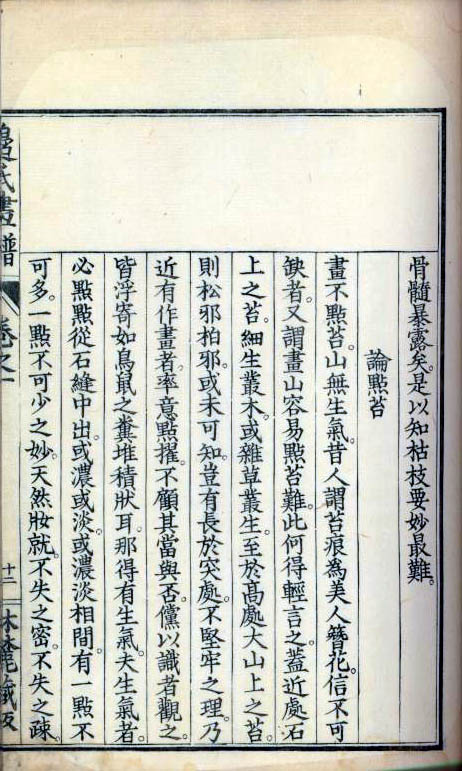 骨髓暴露矣。是以知枯枝要妙最難。
論點苔
畫不點苔。山無生氣。昔人謂苔痕為美人簪花。信不可
缺者。又謂畫山容易點苔難。此何得輕言之。蓋近處石
上之苔。細生叢木。或雜草叢生。至於高處大山上之苔。
則松邪柏邪。或未可知。豈有長於突處。不堅牢之理。乃
近有作畫者。率意點擢。不顧其當與否。儻以識者觀之。
皆浮寄如鳥鼠之糞堆積狀耳。那得有生氣。夫生氣者。
必點點從石縫中出。或濃或淡。或濃淡相間。有一點不
可多。一點不可少之妙。天然妝就。不失之密。不失之疎。
畫譜 卷之一 十二